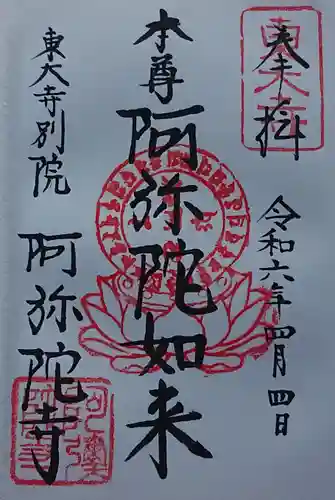 奉拝
令和六年四月四日
本尊
阿弥陀如来
東大寺別院
阿弥陀寺